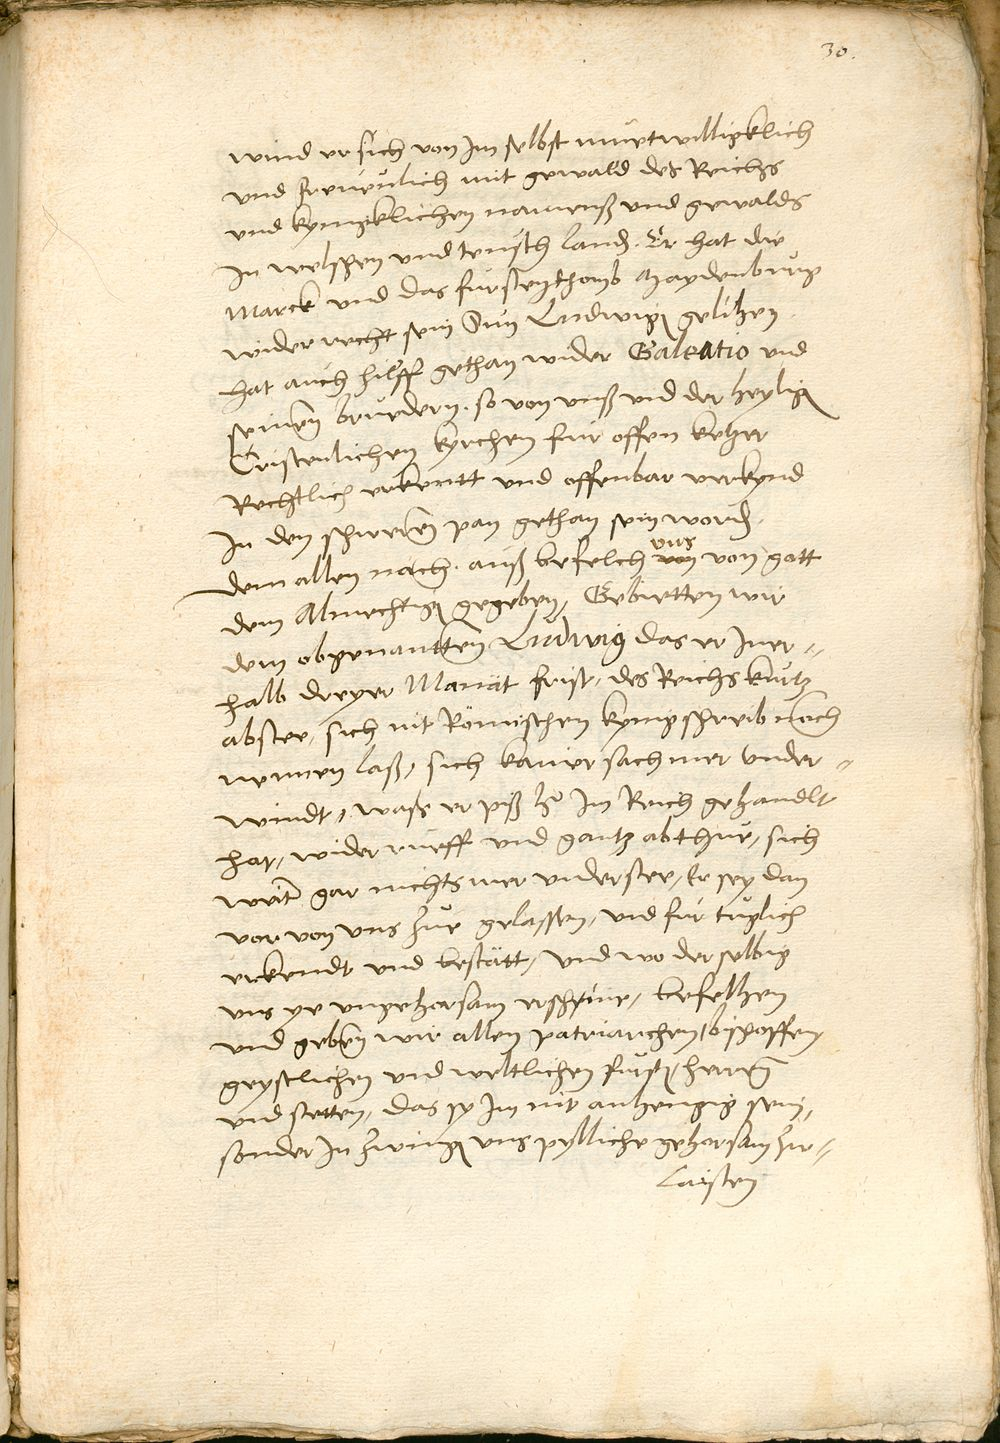 30.
wind er sich von Im selbst muetwilligklich
vnd freuenlich mit gewald des Reichs
vnd kynigklichen namenß vnd gewalds
In welschen vnd teutsch land. Er hat die
Marck vnd das furstenthomb Maydenburg
wider recht sein Sun Ludwigen gelihen
hat auch hilff gethan wider Galeatio vnd
seinen bruedern. so von vnß vnd der heyligen
Cristenlichen kyrchen für offen ketzer
Rechtlich erkentt vnd offenbar verkynd
In den schweren pan gethan sein worden.
dem allen nach. auß befelch vns von gott
dem Almechtigen gegeben, Gebietten wir
dem obgenantten Ludwig das er Iner„
halb dreyer Monat frist, des Reichs kurtz
abstee, sich nit Römischen kynig schreib noch
nennen laß, sich kainer sach mer vnder„
windt, waß er piß her Im Reich gehandlt
hat, wider rueff vnd gantz abthue, sich
weiter gar nichts mer vnderstee, Er sey dan
vor von vns zue gelassen, vnd für tuglich
erkendt vnd bestätt, vnd wo der selbig
vns ye vngehorsam erschine, befelhen
vnd geben wir allen patriarchen, bischoffen
geystlichen vnd weltlichen fursten, herren
vnd stetten, das sy Im nit anhengig sein,
sonder In zwingen vns pylliche gehorsam zue„
Laisten